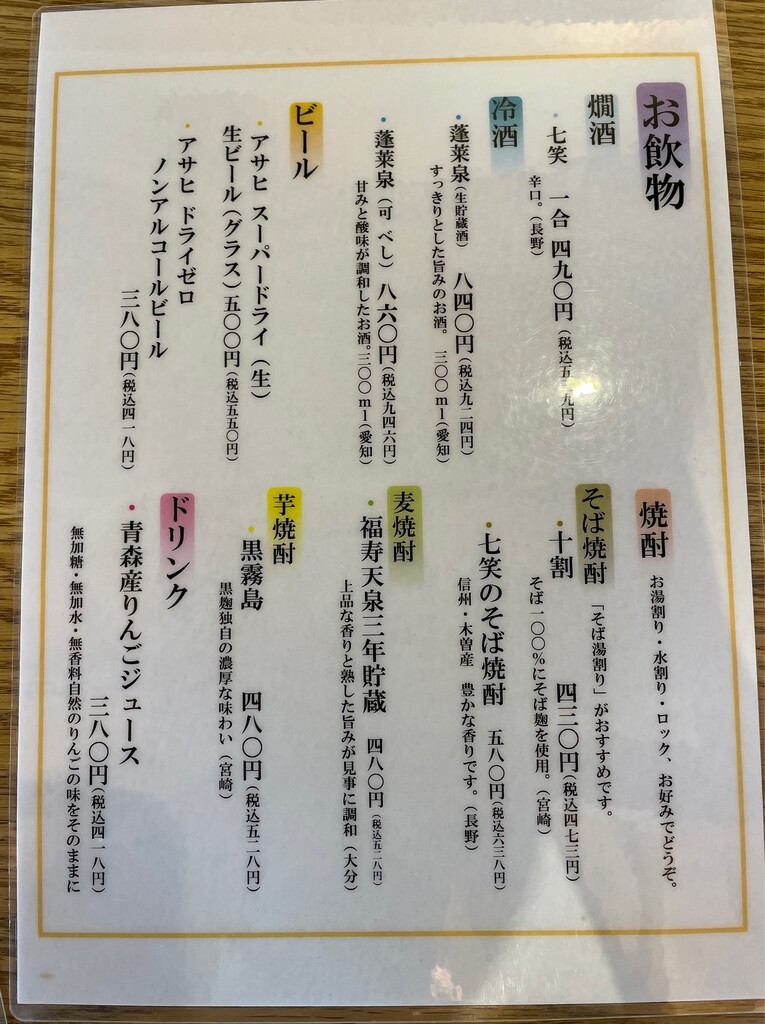 お飲物
燗酒
・七笑 一合 四九〇円(税込五三九円)
辛口。(長野)
冷酒
・蓬莱泉(生貯蔵酒) 八四〇円(税込九二四円)
すっきりとした旨みのお酒。 三〇〇ml(愛知)
・蓬莱泉(可 べし) 八六〇円(税込九四六円)
甘みと酸味が調和したお酒。三〇〇ml(愛知)
ビール
・アサヒ スーパードライ(生)
生ビール(グラス)五〇〇円(税込五五〇円)
・アサヒ ドライゼロ
ノンアルコールビール
三八〇円(税込四一八円)
焼酎 お湯割り・水割り・ロック、お好みでどうぞ。
そば焼酎 「そば湯割り」がおすすめです。
・十割 四三〇円(税込四七三円)
そば一〇〇%にそば麹を使用。(宮崎)
・七笑のそば焼酎 五八〇円(税込六三八円)
信州・木曽産 豊かな香りです。(長野)
麦焼酎
・福寿天泉三年貯蔵 四八〇円(税込五二八円)
上品な香りと熟した旨みが見事に調和(大分)
芋焼酎
・黒霧島 四八〇円(税込五二八円)
黒麹独自の濃厚な味わい(宮崎)
ドリンク
・青森産りんごジュース
三八〇円(税込四一八円)
無加糖・無加水・無香料自然のりんごの味をそのままに